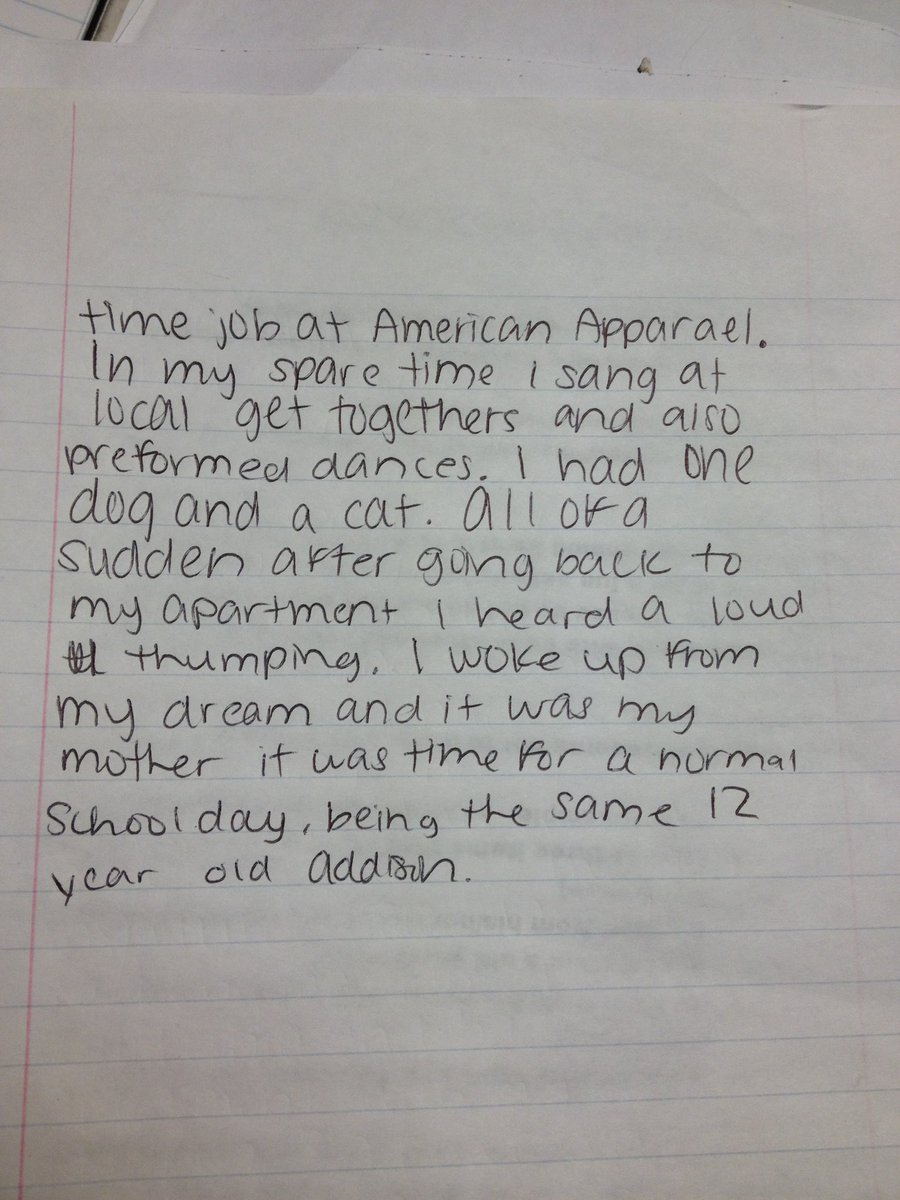 time job at American Apparael.
In my spare time i sang at
local get togethers and also
preformed dances. I had one
dog and a cat. All of a
sudden after going back to
my apartment I heard a loud
thumping. I woke up from
my dream and it was my
mother it was time for a normal
school day, being the same 12
year old addison.